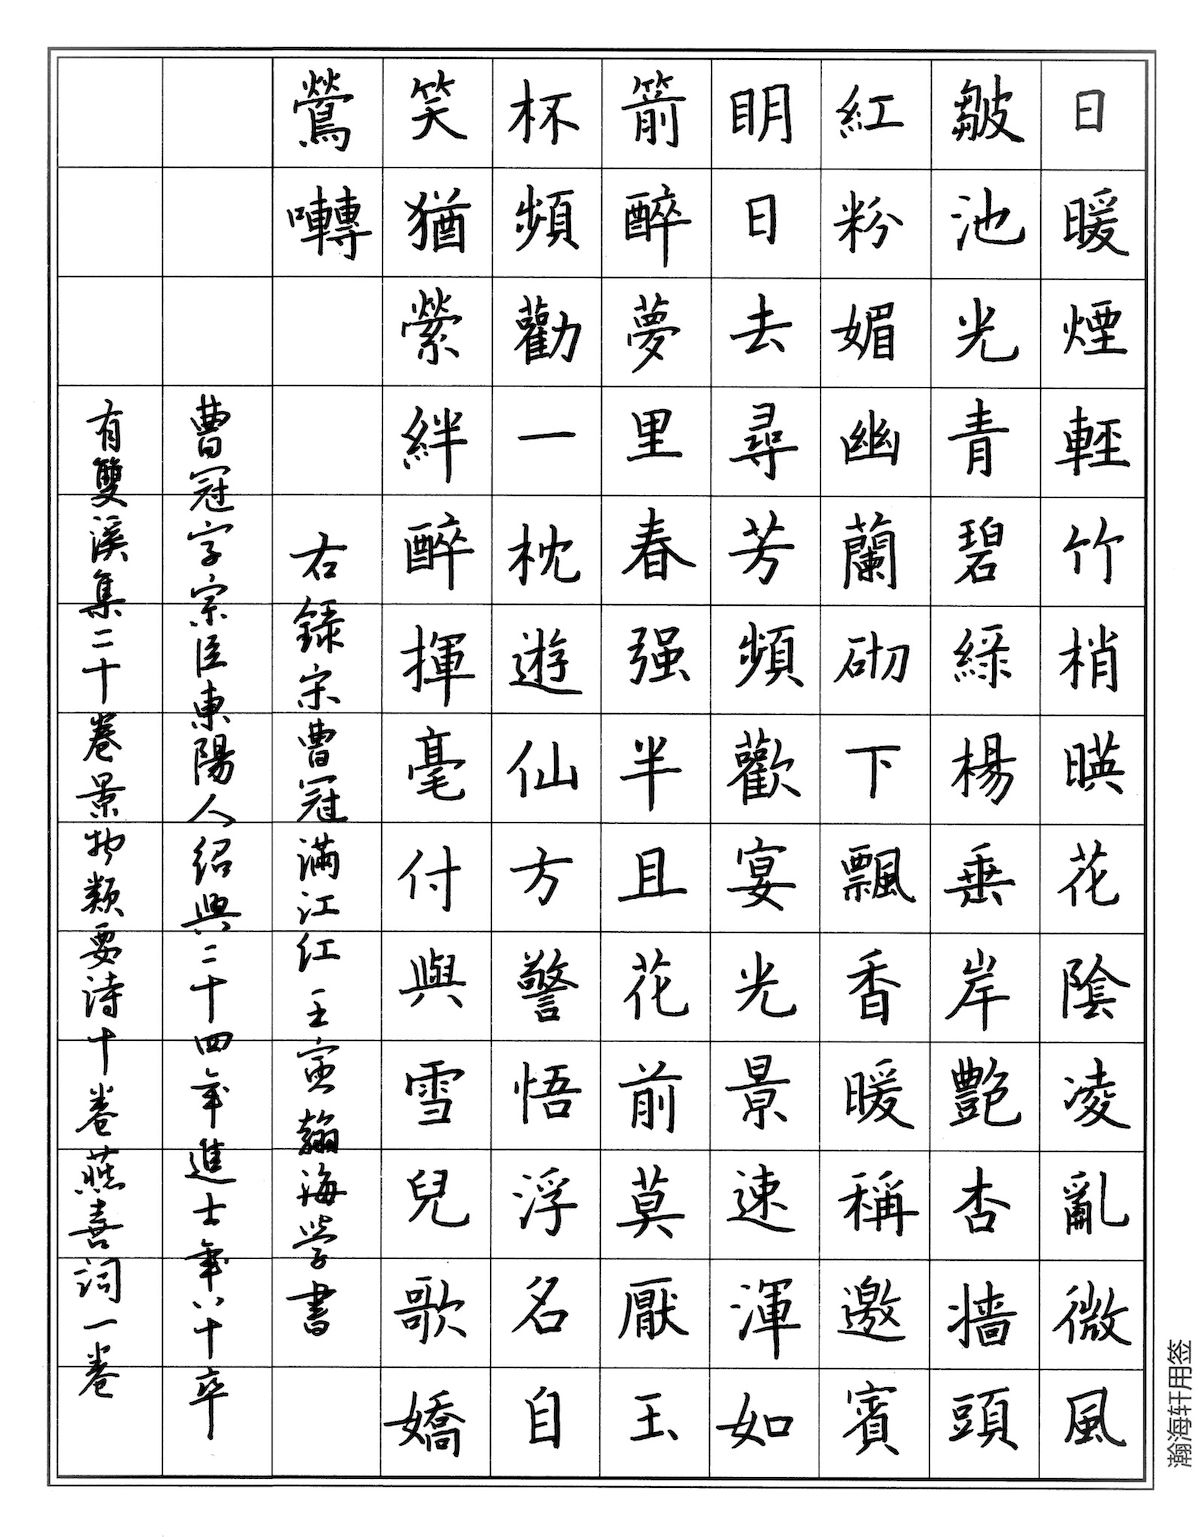 日暖煙輕竹梢暎花陰凌亂微風
皺池光青碧綠楊垂岸艷杏墻頭
紅粉媚幽蘭砌下飄香暖稱邀賓
明日去尋芳頻歡宴光景速渾如
箭醉夢里春强半且花前莫厭玉
杯頻勸一枕遊仙方警悟浮名自
笑猶縈絆醉揮毫付與雪兒歌嬌
鶯囀
右錄宋曹冠滿江紅壬寅翰海學書
曹冠字宗臣東陽人紹興二十四年進士年八十卒
有雙溪集二十卷景物類要詩十卷燕喜詞一卷
瀚海轩用签